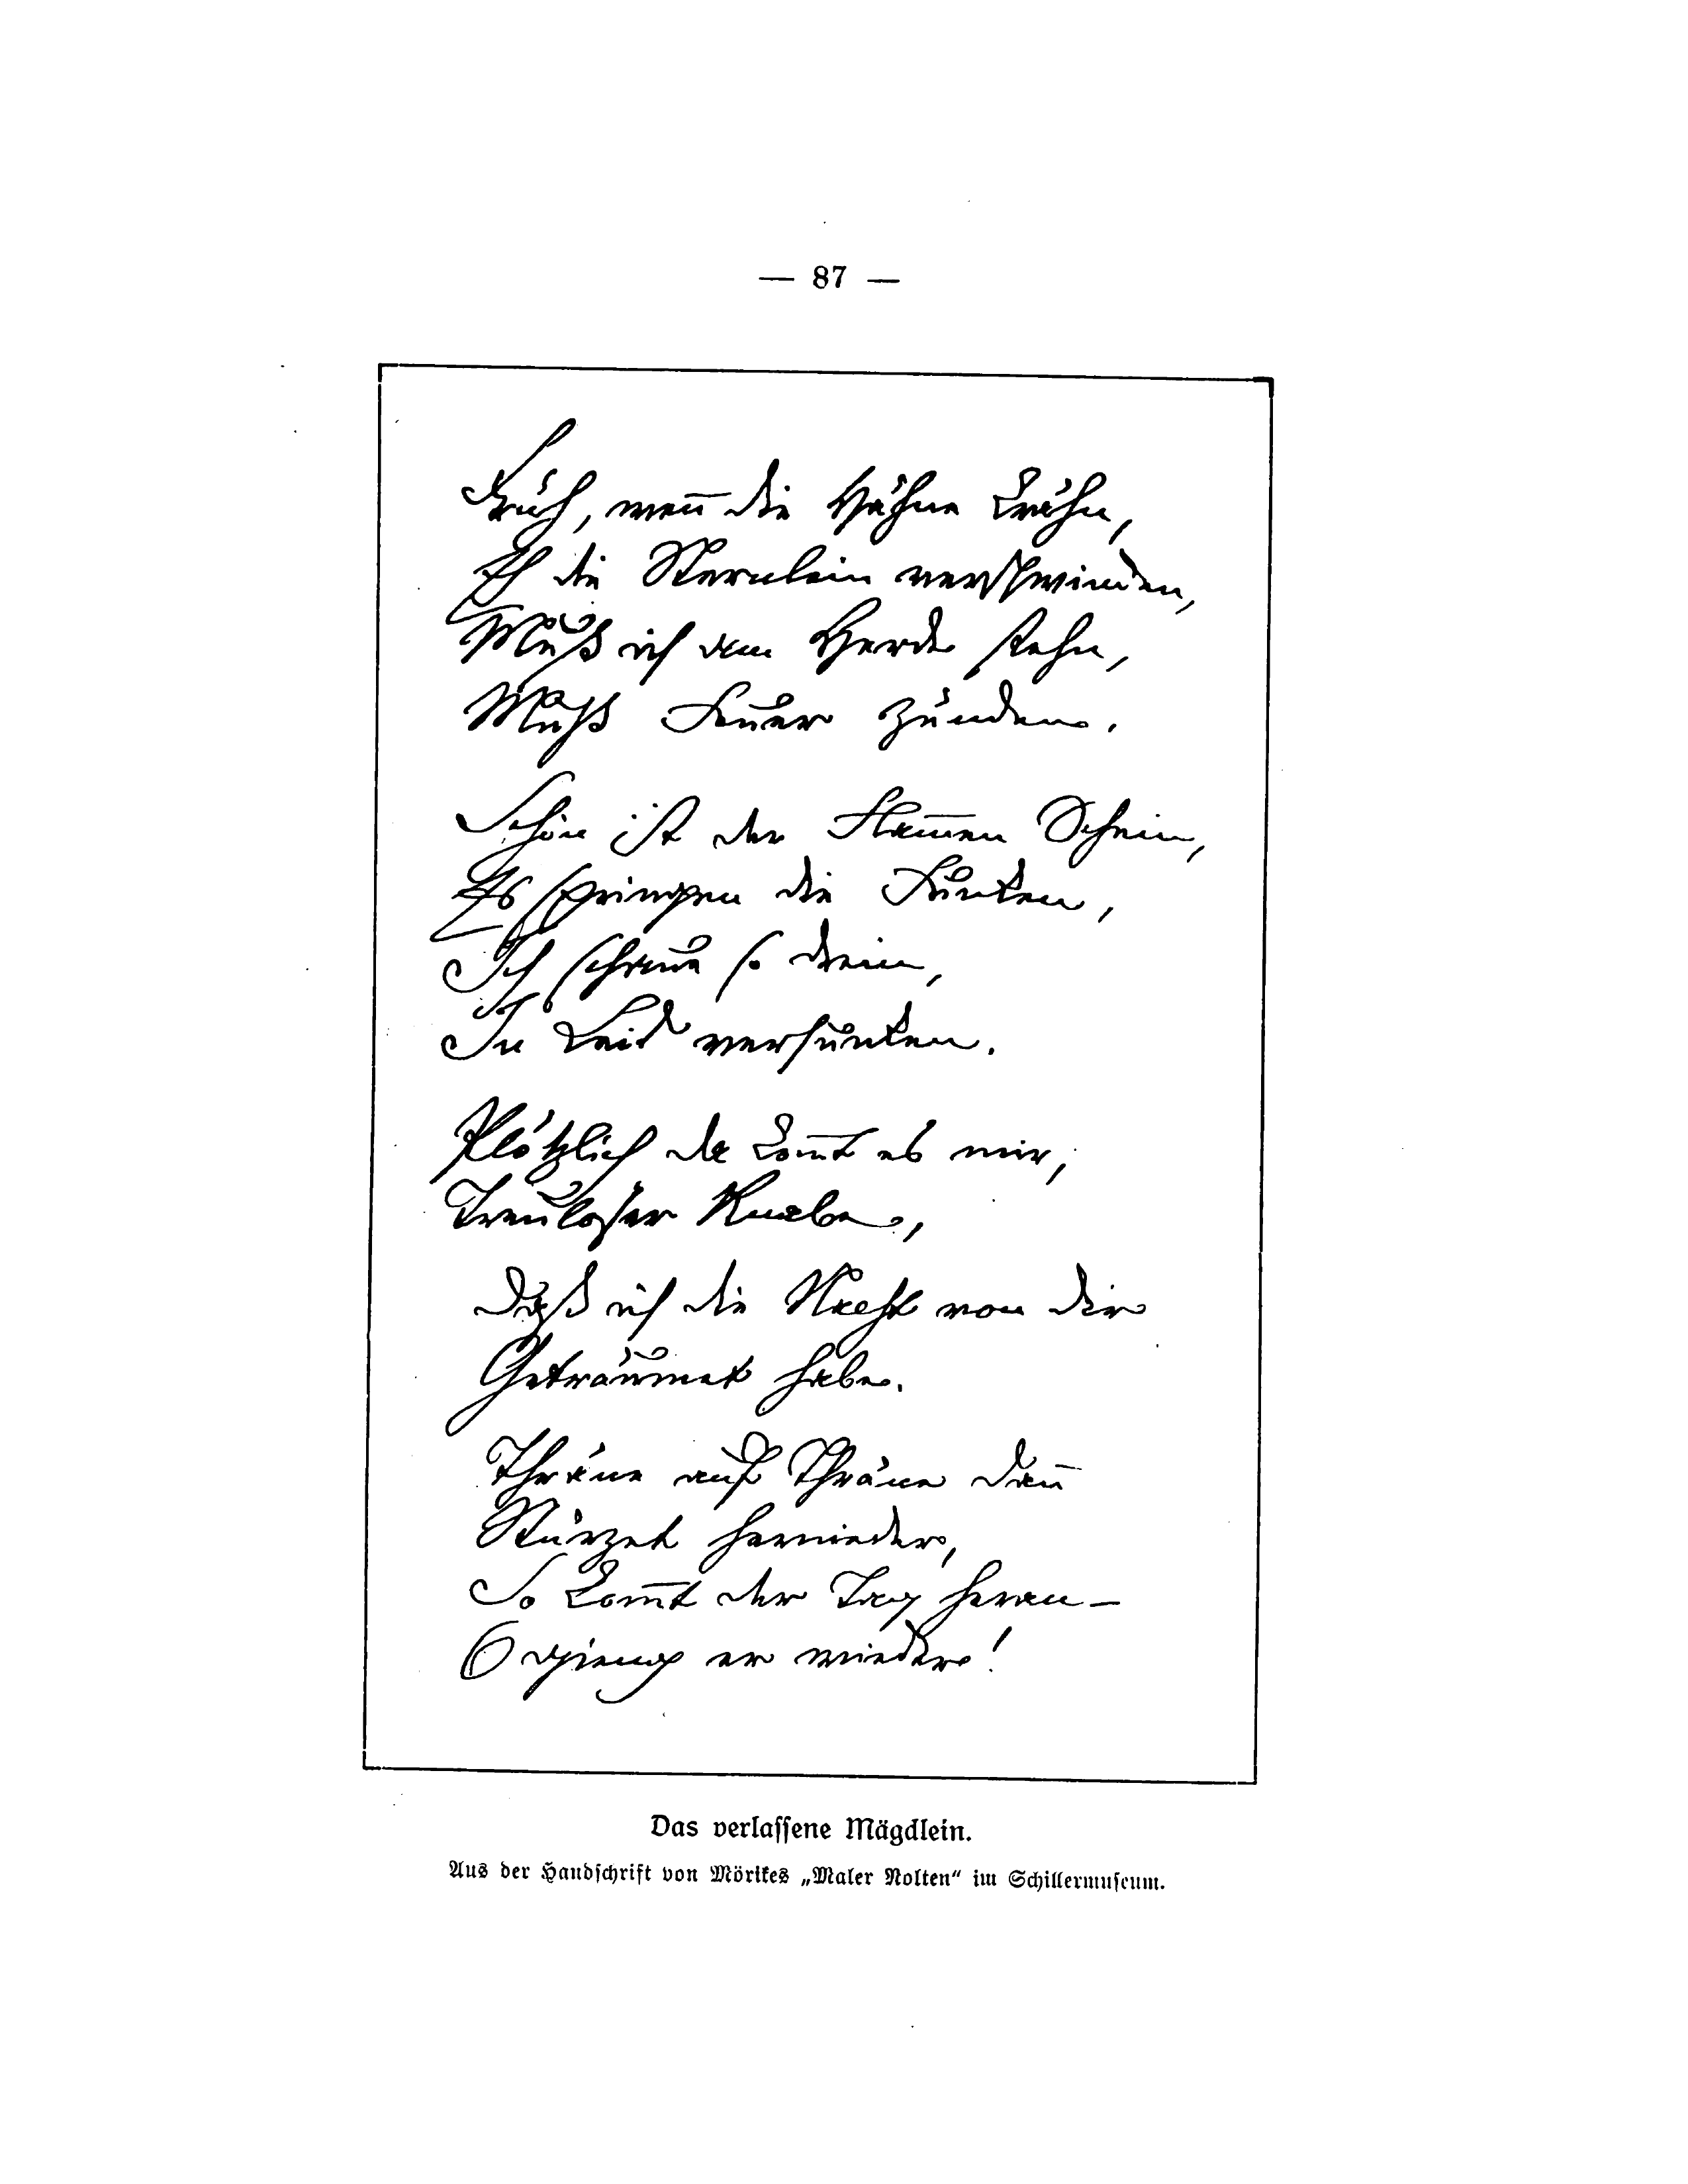 — 87 —
Früh, wen̅ die Hähne krähn,
Eh die Sternlein verschwinden,
Muß ich am Herde stehn,
Muß Feuer zünden.
Schön ist der Flam̅en Schein,
Es springen die Funken,
Ich schaue so drein,
In Leid versunken.
Plötzlich da kom̅t es mir,
Treuloser Knabe,
Daß ich die Nacht von dir
Geträumet habe.
Thräne auf Thräne dan̅
Stürzet hernieder,
So kom̅t der Tag heran –
O gieng er wieder!
Das verlassene Mägdlein.
Aus der Handschrift von Mörikes „Maler Nolten“ im Schillermuseum.